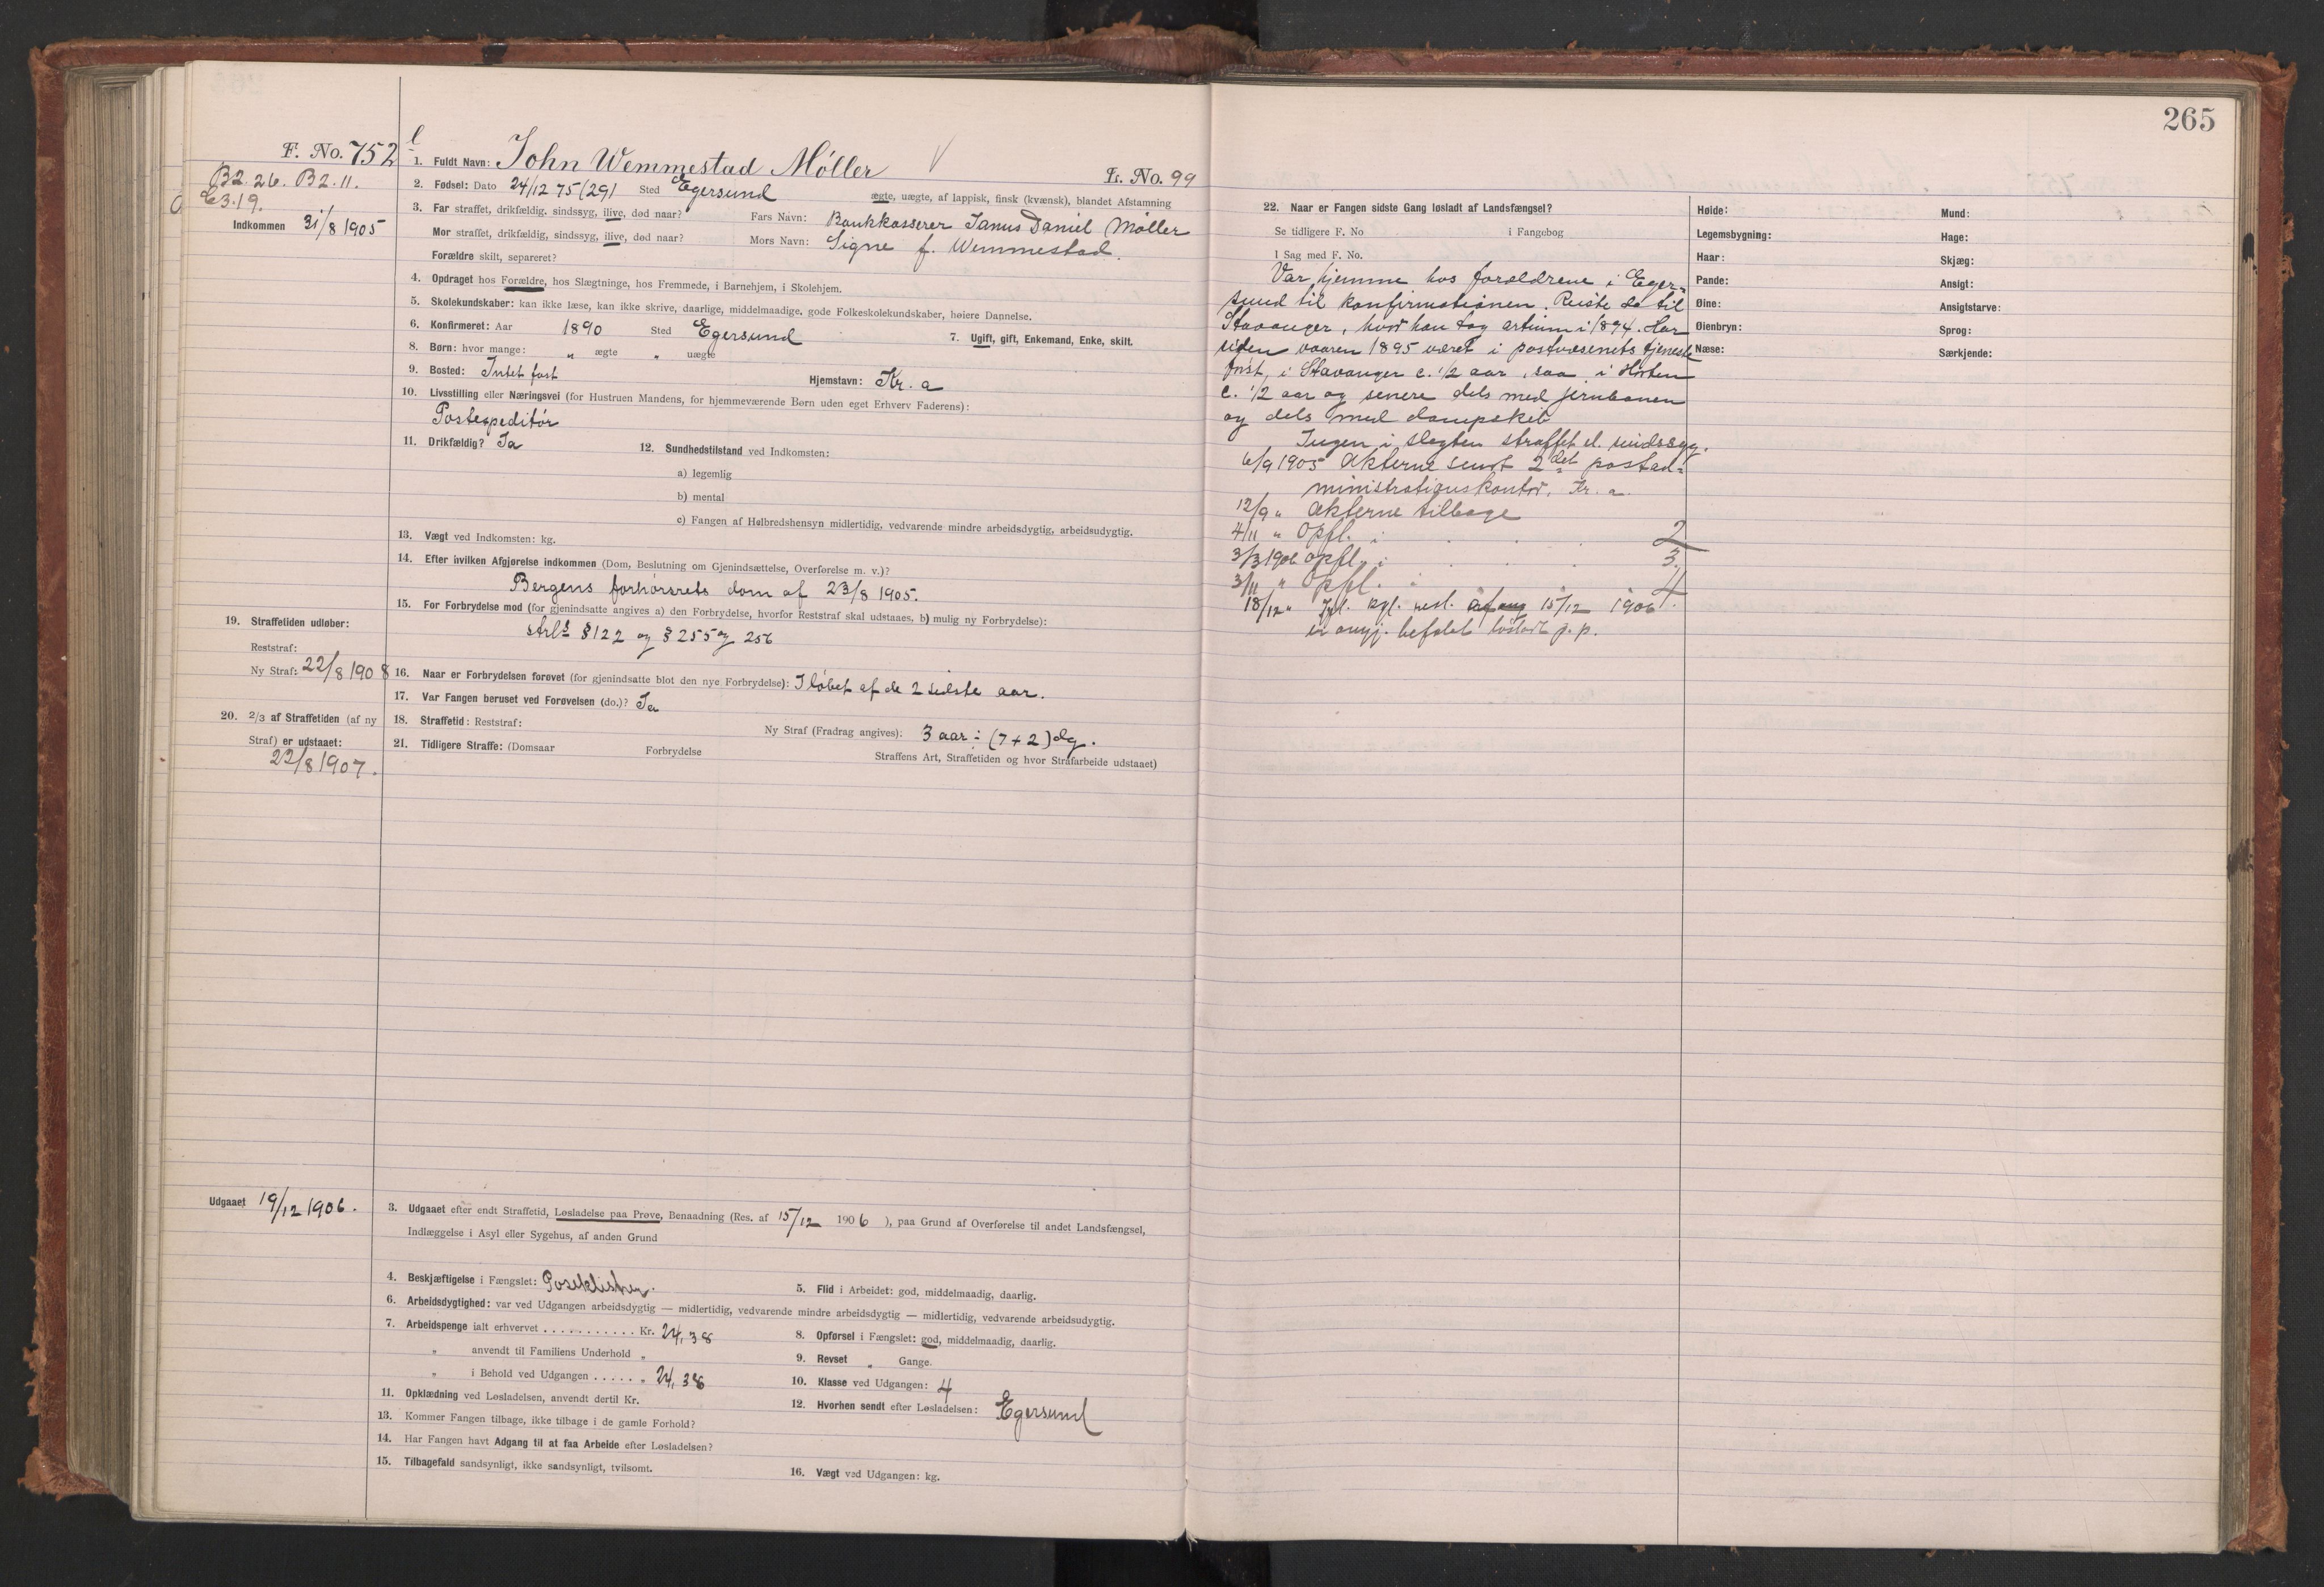 265
F. No. 752
B2.26. B2.11.
E3.19.
Indkommen 31/8 1905
1. Fuldt Navn: John Wemmestad Møller
L. No. 99
2. Fødsel: Dato 24/12 75 (29) Sted Egersund
ægte, uægte, af lappisk, finsk (kvænsk), blandet Afstamning
3. Far straffet, drikfældig, sindssyg, ilive, død naar? Fars Navn: Bankkasserer Janus Daniel Møller
Mor straffet, drikfældig, sindssyg, ilive, død naar? Mors Navn: Signe f. Wemmestad.
Forældre skilt, separeret?
4. Opdraget hos Forældre, hos Slægtninge, hos Fremmede, i Barnehjem, i Skolehjem.
5. Skolekundskaber: kan ikke læse, kan ikke skrive, daarlige, middelmaadige, gode Folkeskolekundskaber, høiere Dannelse.
6. Konfirmeret: Aar 1890 Sted Egersund 7. Ugift, gift, Enkemand, Enke, skilt.
8. Børn: hvor mange: " ægte " uægte
9. Bosted: Intet fast Hjemstavn: Kr. a
10. Livsstilling eller Næringsvei (for Hustruen Mandens, for hjemmeværende Børn uden eget Erhverv Faderens):
Postexpeditör
11. Drikfældig? Ja 12. Sundhedstilstand ved Indkomsten:
a) legemlig
b) mental
c) Fangen af Helbredshensyn midlertidig, vedvarende mindre arbeidsdygtig, arbeidsudygtig.
13. Vægt ved Indkomsten: kg.
14. Efter hvilken Afgjørelse indkommen (Dom, Beslutning om Gjenindsættelse, Overførelse m. v.)?
Bergens forhørsrets dom af 23/8 1905.
15. For Forbrydelse mod (for gjenindsatte angives a) den Forbrydelse, hvorfor Reststraf skal udstaaes, b) mulig ny Forbrydelse):
strl's § 122 og § 255 og 256
19. Straffetiden udløber:
Reststraf:
Ny Straf: 22/8 1908
16. Naar er Forbrydelsen forøvet (for gjenindsatte blot den nye Forbrydelse): I løbet af de 2 sidste aar.
17. Var Fangen beruset ved Forøvelsen (do.)? Ja
20. 2/3 af Straffetiden (af ny
Straf) er udstaaet:
22/8 1907.
18. Straffetid: Reststraf: Ny Straf (Fradrag angives): 3 aar ÷ (7+2) dg.
21. Tidligere Straffe: (Domsaar Forbrydelse Straffens Art, Straffetiden og hvor Strafarbeide udstaaet)
Udgaaet 19/12 1906.
3. Udgaaet efter endt Straffetid, Løsladelse paa Prøve, Benaadning (Res. af 15/12 1906 ), paa Grund af Overførelse til andet Landsfængsel,
Indlæggelse i Asyl eller Sygehus, af anden Grund
4. Beskjæftigelse i Fængslet: Poseklistrer. 5. Flid i Arbeidet: god, middelmaadig, daarlig.
6. Arbeidsdygtighed: var ved Udgangen arbeidsdygtig — midlertidig, vedvarende mindre arbeidsdygtig — midlertidig, vedvarende arbeidsudygtig.
7. Arbeidspenge ialt erhvervet . . . . . . . . . . . Kr. 24,38 8. Opførsel i Fængslet: god, middelmaadig, daarlig.
" anvendt til Familiens Underhold " 9. Revset " Gange.
" i Behold ved Udgangen . . . . . " 24,38 10. Klasse ved Udgangen: 4
11. Opklædning ved Løsladelsen, anvendt dertil Kr. 12. Hvorhen sendt efter Løsladelsen: Egersund
13. Kommer Fangen tilbage, ikke tilbage i de gamle Forhold?
14. Har Fangen havt Adgang til at faa Arbeide efter Løsladelsen?
15. Tilbagefald sandsynligt, ikke sandsynligt, tvilsomt. 16. Vægt ved Udgangen: kg.
22. Naar er Fangen sidste Gang løsladt af Landsfængsel?
Se tidligere F. No i Fangebog
I Sag med F. No.
Var hjemme hos forældrene i Eger-
sund til konfirmationen. Reiste da til
Stavanger, hvor han tog artium i 1894. Har
siden vaaren 1895 været i postvæsenets tjeneste
først i Stavanger c. 1/2 aar, saa i Horten
c. 1/2 aar og senere dels med jernbanen
og dels med dampskib
Ingen i slegten straffet el. sindssyg.
6/9 1905 Akterne sendt 2det postad-
ministrationskontor, Kr. a.
12/9 " Akterne tilbage
4/11 " Opfl. i . . . 2
3/3 1906 opfl. i . . . 3.
3/11 " Opfl. . . . 4
18/12 " Ifl. kgl. resl. af 15/12 1906
er angj. befalet løsladt p. p.
Høide:
Legemsbygning:
Haar:
Pande:
Øine:
Øienbryn:
Næse:
Mund:
Hage:
Skjæg:
Ansigt:
Ansigtstarve:
Sprog:
Særkjende: